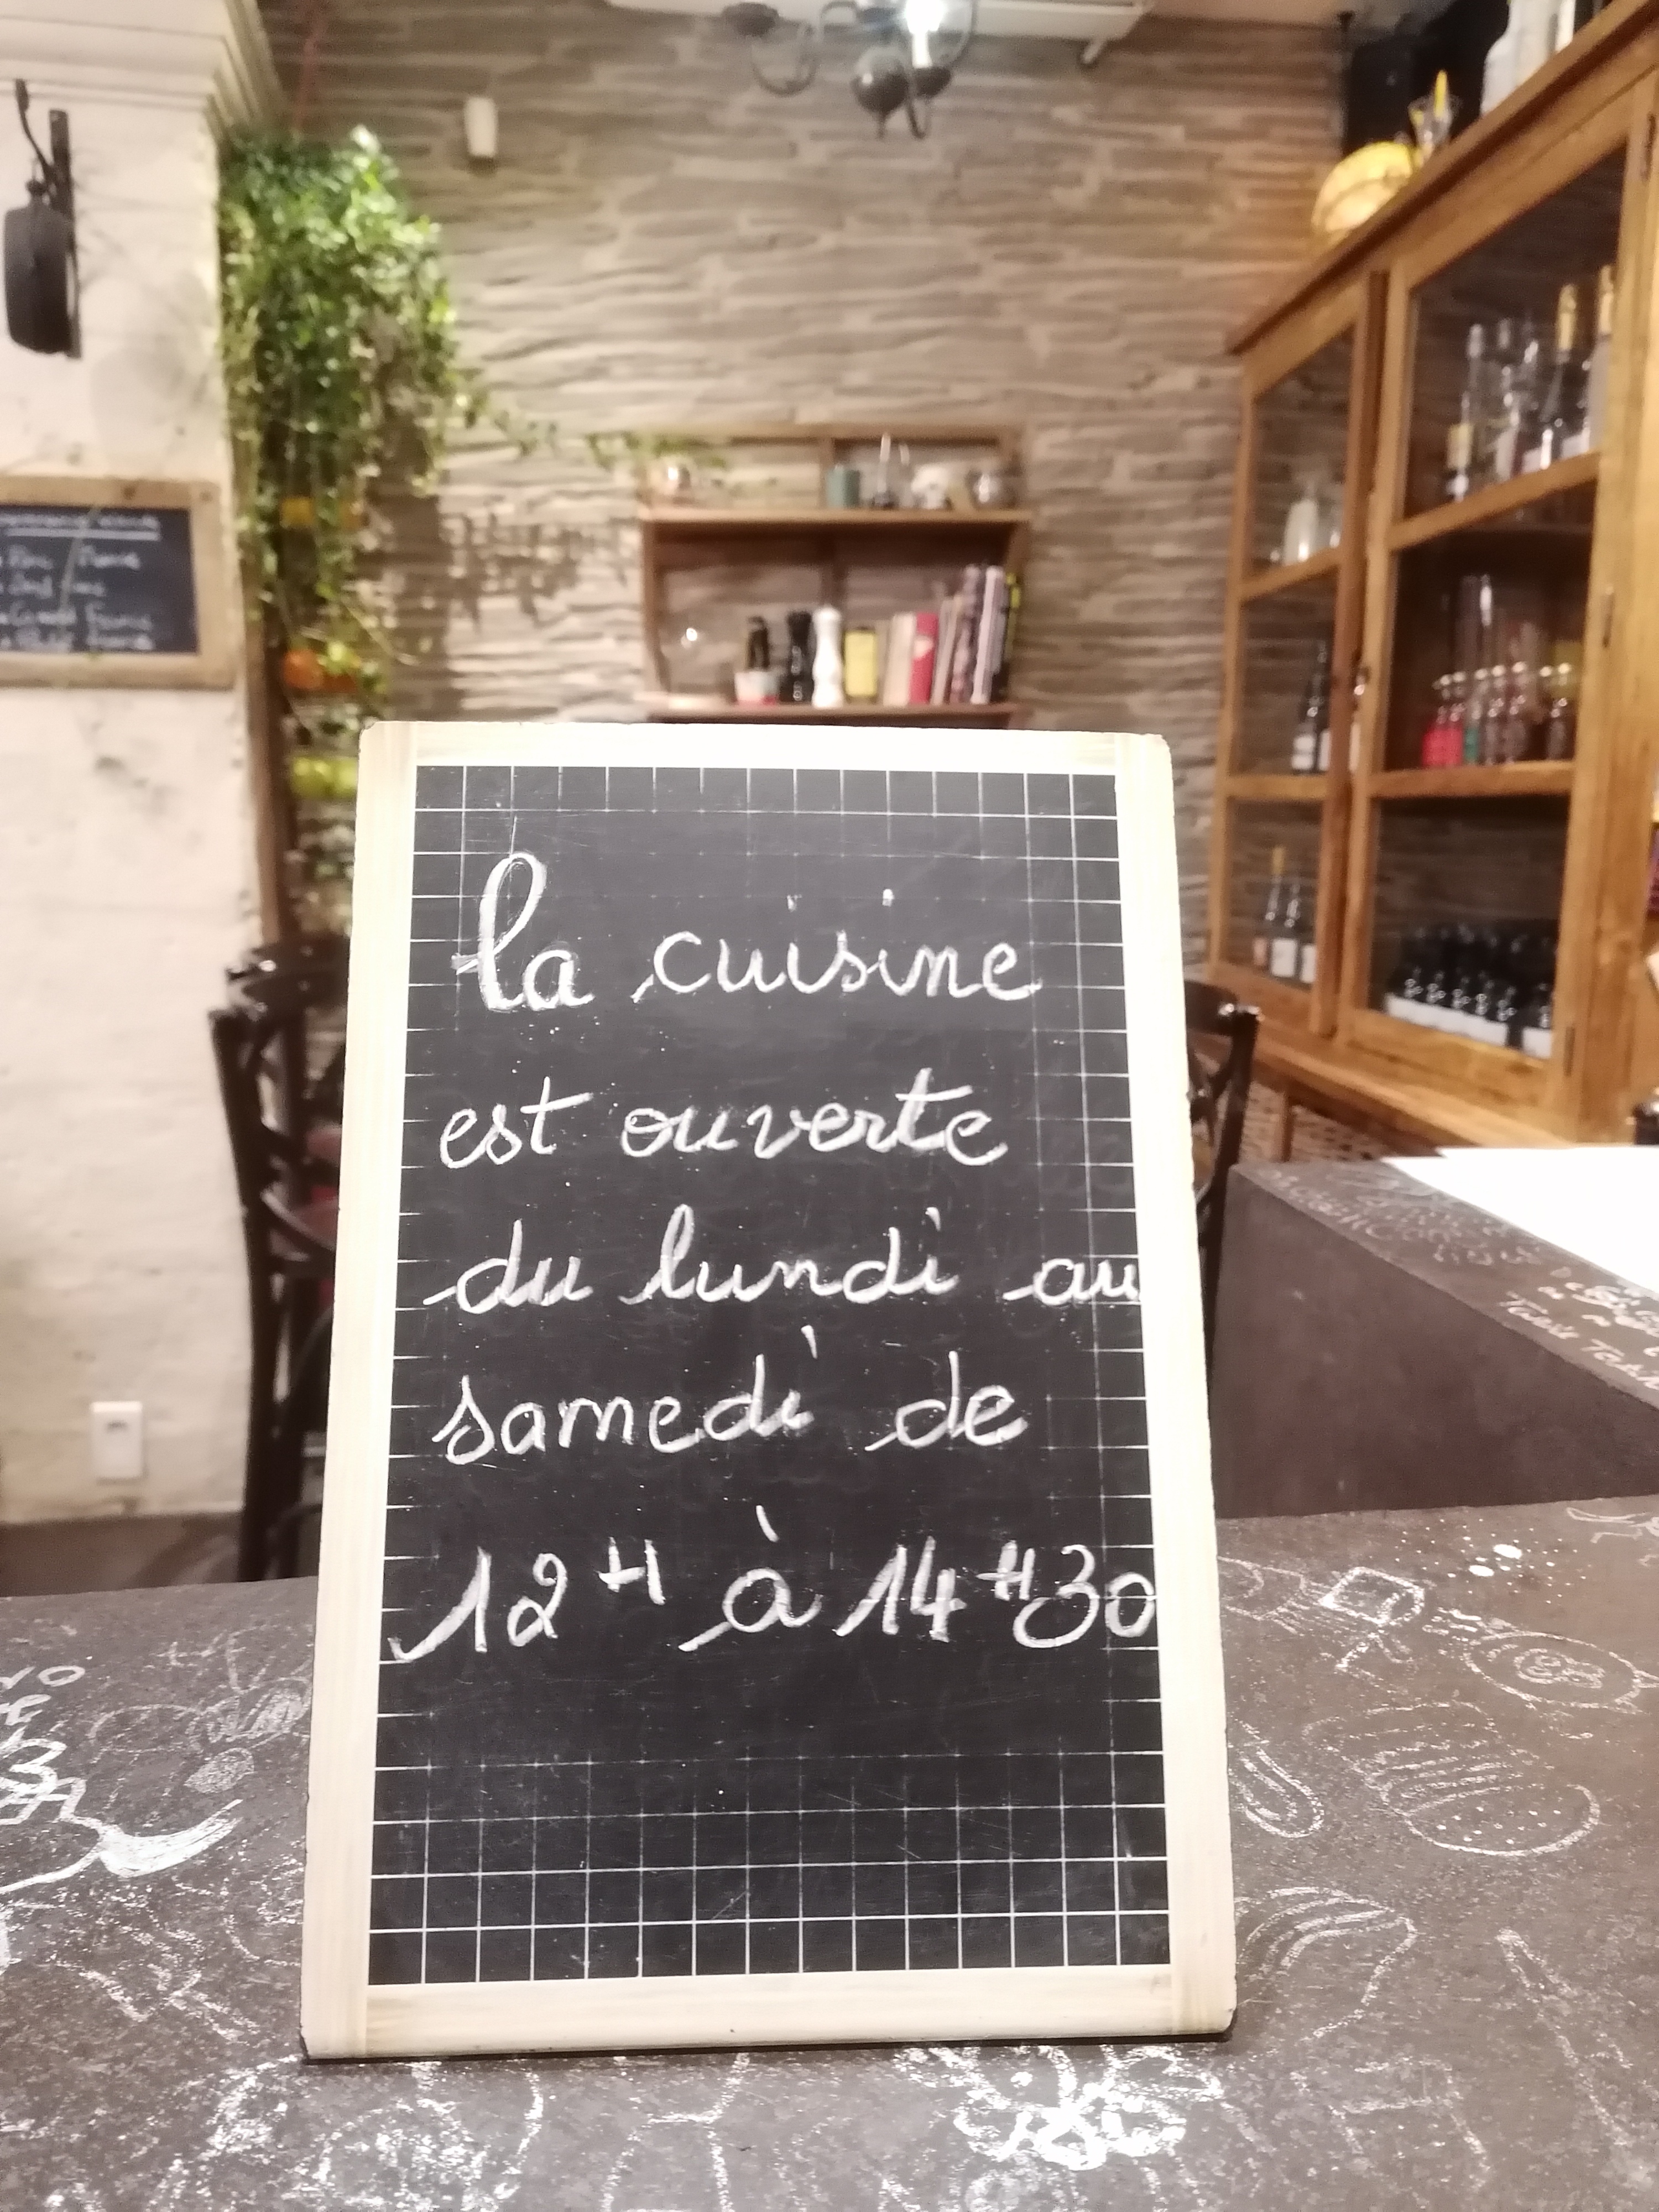 la cuisine
est ouverte
du lundi au
samedi de
12H à 14H30